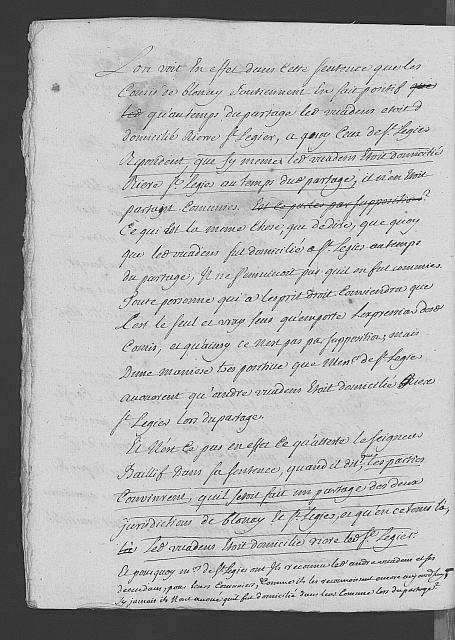 L'on voit En effet dans Cette sentence que les
Comis de blonay Soutiennent En fait positif que
led qu'au temps du partage led vuadens etoit d
domicilié Riere St. Legier, a quoy Ceux de St. Legier
Repondent, que sy meme led vuadens Etoit domicilié
Riere St. Legier au temps dud partage, il n'en Etoit
partant Communier. Est ce parler par supposition?
Ce qui Est la meme Chose, que de dire, que quoy
que led vuadens fut domicilié a St. Legier au temps
du partage, Il ne s'ensuivoit pas qu'il en fut communier.
Toute personne qui a l'esprit droit Conviendra que
C'est le seul et vray sens qu'emporte l'expression desd
Comis, et qu'ainsy ce N'est pas par supposition, mais
D'une maniere tres positive que Mess.rs de St. Legier
avouerent qu'andre vuadens Etoit domicilié Riere
St. Legier lors du partage.
Et N'est Ce pas en effet Ce qu'atteste le seigneur
Baillif dans sa sentence, quand il dit, que les parties
Convinrent, qu'il seroit fait un partage des deux
jurisdictions de blonay et St. Legier, et qu'en ce temps là,
là led vuadens Etoit domicilié riere led St. Legier.
Et pourquoy m.rs de St. Legier ont ils reconnu led andre vuadens et ses
descendans, pour leurs Communiers, Comme ils les reconnoissent encore aujourd'huy
Sy jamais ils N'ont avoué qu'il fut domicilié dans leur Commune lors du partage?